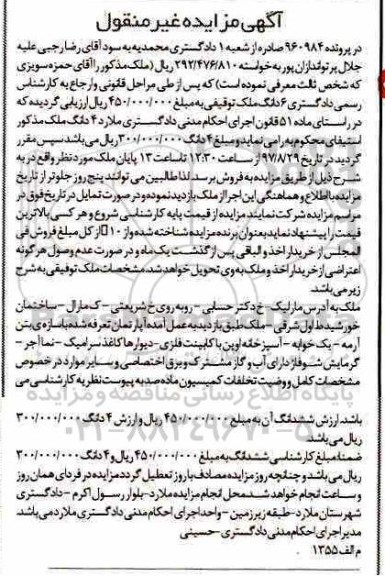 آگهی مزایده غیر منقول
در پرونده ۹۶۰۹۸۴ صادره از شعبه ۱ دادگستری محمدیه به سود آقای رضا رجبی علیه
جلال پرتواندازان پور به خواسته ۲۹۲/۴۷۶/۸۱۰ ریال (ملک مذکور را آقای حمزه سویزی
که شخص ثالث معرفی نموده است) که پس از طی مراحل قانونی و ارجاع به کارشناس
رسمی دادگستری ۶ دانگ ملک توقیفی به مبلغ ۴۵۰/۰۰۰/۰۰۰ ریال ارزیابی گردیده که
در راستای ماده ۵۱ قانون اجرای احکام مدنی دادگستری ملارد ۴ دانگ ملک مذکور
استیفای محکوم به را می نماید و مبلغ ۴ دانگ ۳۰۰/۰۰۰/۰۰۰ ریال می باشد سپس مقرر
گردید در تاریخ ۹۷/۸/۲۹ از ساعت ۱۲:۳۰ تا ساعت ۱۳ پایان ملک مورد نظر واقع در به
شرح ذیل از طریق مزایده به فروش برسد لذا طالبین می توانند پنج روز جلوتر از تاریخ
مزایده با اطلاع و هماهنگی این اجرا از ملک بازدید نموده و در صورت تمایل در تاریخ فوق در
مراسم مزایده شرکت نمایند مزایده از قیمت پایه کارشناسی شروع و هر کسی بالاترین
قیمت را پیشنهاد نماید بعنوان برنده مزایده شناخته شده و از ۱۰٪ از کل مبلغ فروش فی
المجلس از خریدار اخذ و الباقی پس از گذشت یک ماه و در صورت عدم وصول هر گونه
اعتراضی از خریدار اخذ و ملک به وی تحویل خواهد شد، مشخصات ملک توقیفی به شرح
زیر می باشد.
ملک به آدرس مارلیک - خ دکتر حسابی - روبه روی خ شریعتی - ک مارال - ساختمان
خورشید ط اول شرقی - ملک طبق بازدید به عمل آمده آپارتمان تعرفه شده با سازه ی بتن
آرمه - یک خوابه - آشپزخانه اوپن با کابینت فلزی - دیوارها کاغذ سرامیک - نما آجر -
گرمایش شوفاژ دارای آب و گاز مشترک و برق اختصاصی و سایر موارد در خصوص
مشخصات کامل و وضیت تخلفات کمیسیون ماده صد به پیوست نظریه کارشناسی می
باشد. ارزش ششدانگ آن به مبلغ ۴۵۰/۰۰۰/۰۰۰ ریال و ارزش ۴ دانگ ۳۰۰/۰۰۰/۰۰۰
ریال می باشد.
ضمنا مبلغ کارشناسی ششدانگ به مبلغ ۴۵۰/۰۰۰/۰۰۰ ریال و ۴ دانگ ۳۰۰/۰۰۰/۰۰۰
ریال می باشد و چنانچه روز مزایده مصادف با روز تعطیل گردد مزایده در فردای همان روز
و ساعت انجام خواهد شد. محل انجام مزایده ملارد - بلوار رسول اکرم - دادگستری
شهرستان ملارد - طبقه زیرزمین - واحد اجرای احکام مدنی دادگستری ملارد می باشد.
مدیر اجرای احکام مدنی دادگستری - حسینی
م الف ۱۳۵۵